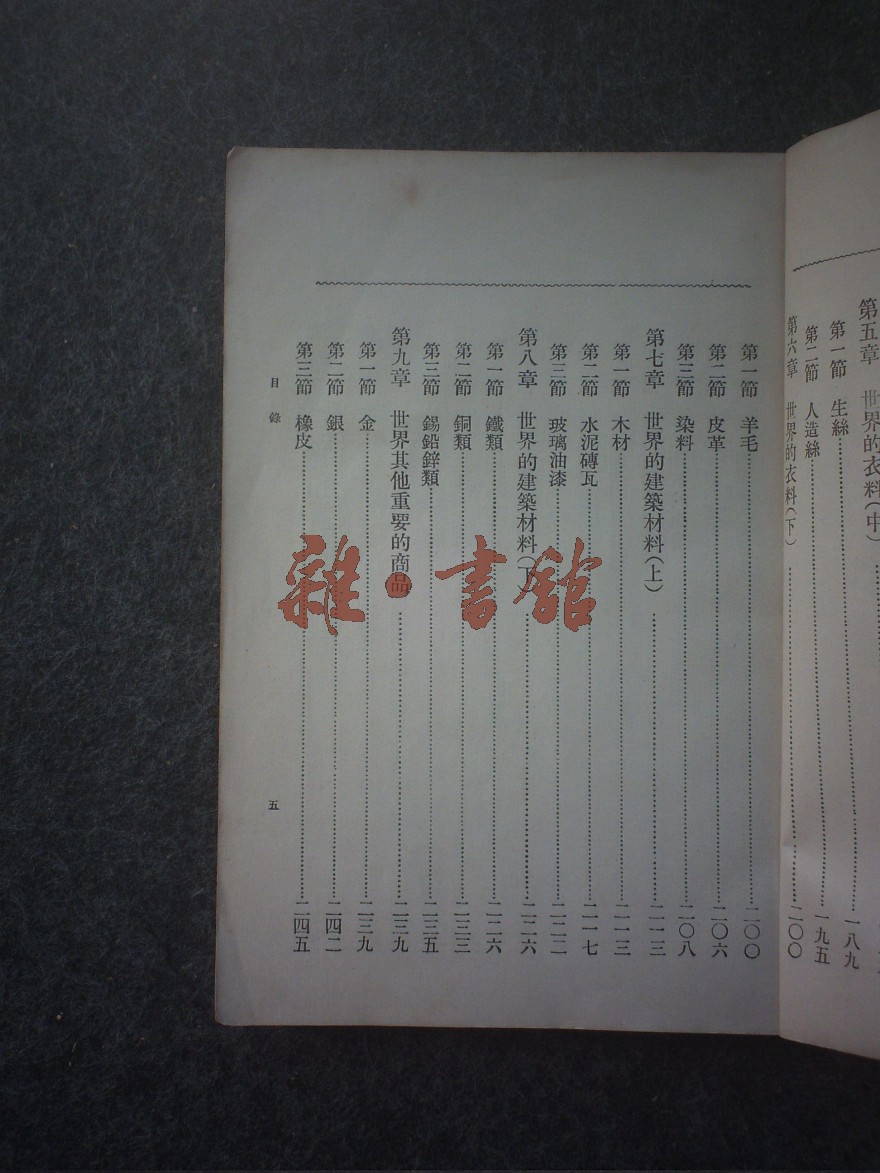 第五章　世界的衣料（中）
第一節　生絲……一八九
第二節　人造絲……一九五
第六章　世界的衣料（下）……二〇〇
第一節　羊毛……二〇〇
第二節　皮革……二〇六
第三節　染料……二〇八
第七章　世界的建築材料（上）……二一三
第一節　木材……二一三
第二節　水泥磚瓦……二一七
第三節　玻璃油漆……二二二
第八章　世界的建築材料（下）……二二六
第一節　鐵類……二二六
第二節　銅類……二三三
第三節　錫鉛鋅類……二三五
第九章　世界其他重要的商品……二三九
第一節　金……二三九
第二節　銀……二四二
第三節　橡皮……二四五
目錄
五
雜·書館